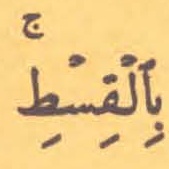 بِٱلْقِسْطِۚ